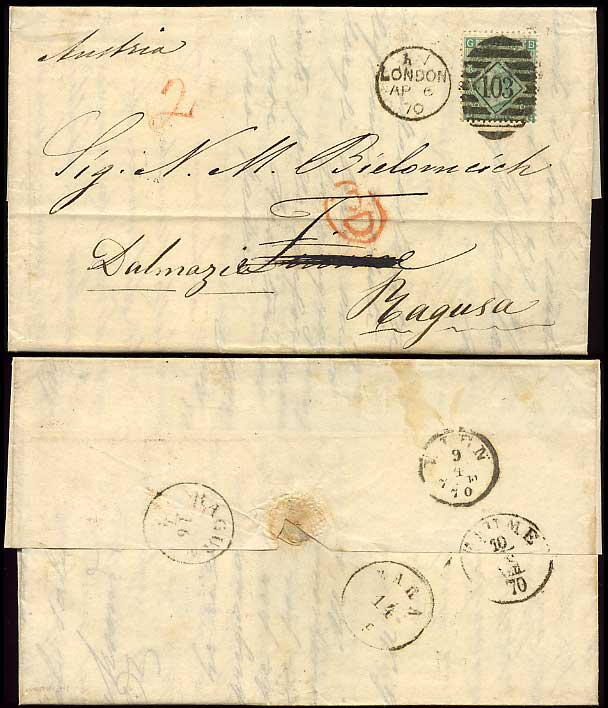 Austria
2
LONDON
AP 6
70
103
Sig. N. M. Bielovucich
PD
Dalmazia
Ragusa
WIEN
9
4
70
RAGUSA
16
4
FIUME
10
70
ZARA
14